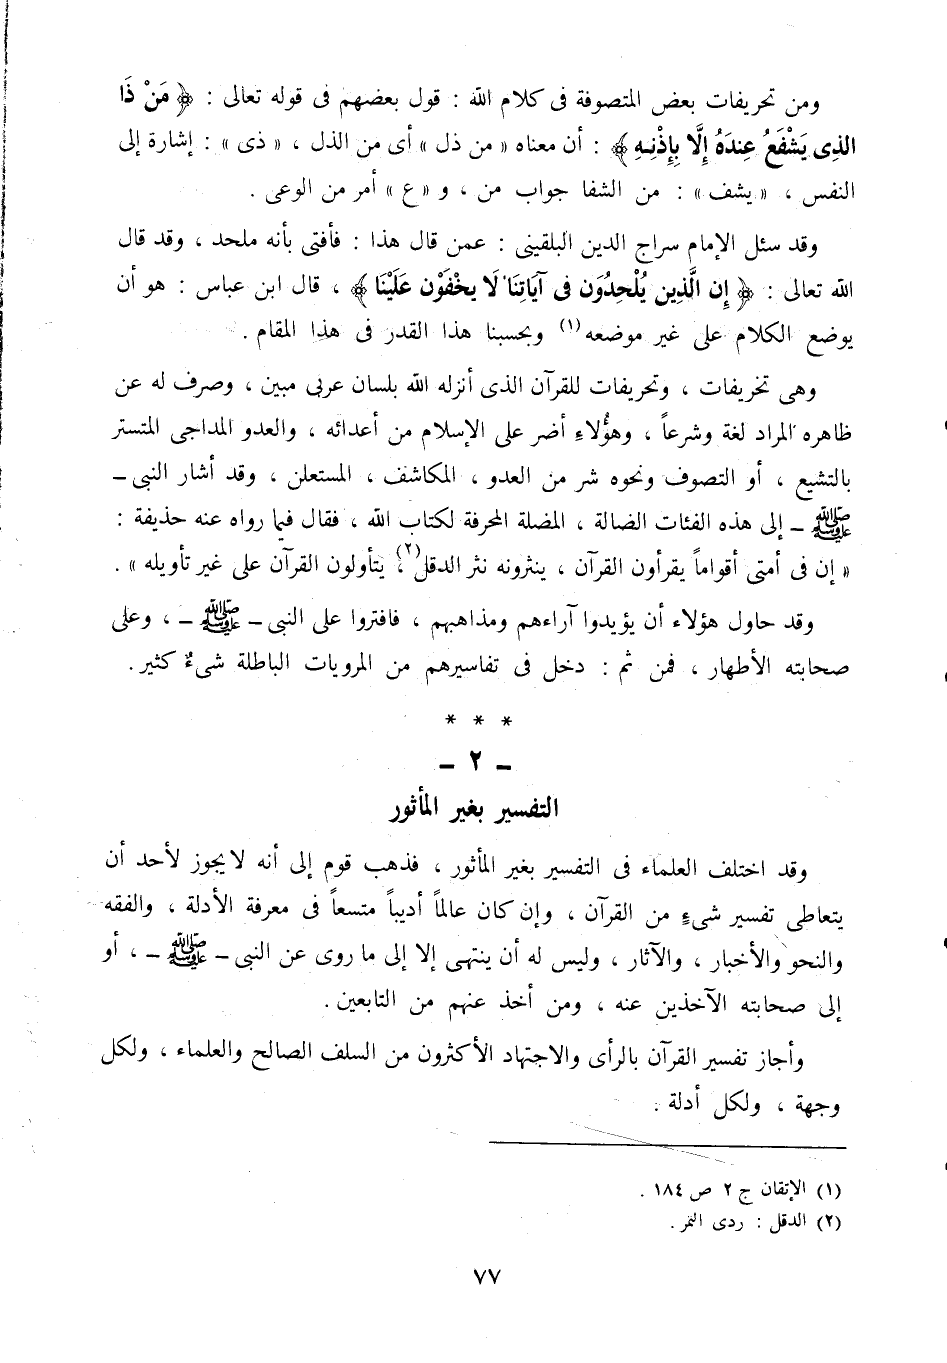 ومن تحريفات بعض المتصوفة فى كلام الله : قول بعضهم فى قوله تعالى : ﴿ مَنْ ذَا
الذِى يَشْفَعُ عِندَهُ إِلَّا بِإِذْنِهِ ﴾ : أن معناه « من ذل » أى من الذل ، « ذى » : إشارة إلى
النفس ، « يشف » : من الشفا جواب من ، و « ع » أمر من الوعى .
وقد سئل الإمام سراج الدين البلقينى : عمن قال هذا : فأفتى بأنه ملحد ، وقد قال
الله تعالى : ﴿ إِن الَّذِين يُلْحِدُوَن فى آيَاتِنَا لَا يخْفَوْن عَلَيْنَا ﴾ ، قال ابن عباس : هو أن
يوضع الكلام على غير موضعه (١) وبحسبنا هذا القدر فى هذا المقام .
وهى تخريفات ، وتحريفات للقرآن الذى أنزله الله بلسان عربى مبين ، وصرف له عن
ظاهره المراد لغة وشرعاً ، وهؤُلاءِ أضر على الإسلام من أعدائه ، والعدو المداجى المتستر
بالتشيع ، أو التصوف ونحوه شر من العدو ، المكاشف ، المستعلن ، وقد أشار النبى ــ
ﷺ ــ إلى هذه الفئات الضالة ، المضلة المحرفة لكتاب الله ، فقال فيما رواه عنه حذيفة :
« إن فى أمتى أقواماً يقرأون القرآن ، ينثرونه نثر الدقل (٢) ، يتأولون القرآن على غير تأويله » .
وقد حاول هؤلاء أن يؤيدوا آراءهم ومذاهبهم ، فافتروا على النبى ــ ﷺ ــ ، وعلى
صحابته الأطهار ، فمن ثم : دخل فى تفاسيرهم من المرويات الباطلة شىءٌ كثير .
* * *
ــ ٢ ــ
التفسير بغير المأثور
وقد اختلف العلماء فى التفسير بغير المأثور ، فذهب قوم إلى أنه لا يجوز لأحد أن
يتعاطى تفسير شىءٍ من القرآن ، وإن كان عالماً أديباً متسعاً فى معرفة الأدلة ، والفقه
والنحو والأخبار ، والآثار ، وليس له أن ينتهى إلا إلى ما روى عن النبى ــ ﷺ ــ ، أو
إلى صحابته الآخذين عنه ، ومن أخذ عنهم من التابعين .
وأجاز تفسير القرآن بالرأى والاجتهاد الأكثرون من السلف الصالح والعلماء ، ولكل
وجهة ، ولكل أدلة .
(١) الإتقان ج ٢ ص ١٨٤ .
(٢) الدقل : ردى التمر .
٧٧